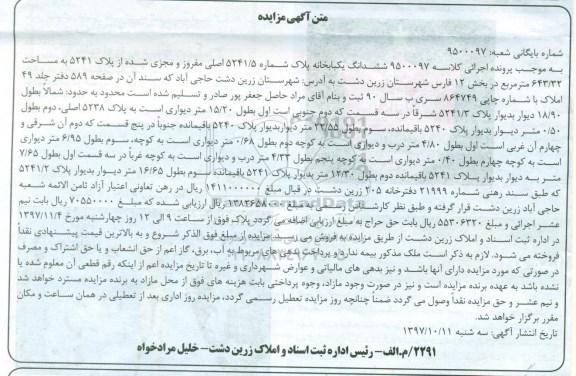 متن آگهی مزایده
شماره بایگانی شعبه: ۹۵۰۰۰۹۷
به موجب پرونده اجرائی کلاسه ۹۵۰۰۰۹۷ ششدانگ یکبابخانه پلاک شماره ۵۲۴۱/۵ اصلی مفروز و مجزی شده از پلاک ۵۲۴۱ به مساحت
۶۴۳/۳۲ مترمربع در بخش ۱۲ فارس شهرستان زرین دشت به آدرس: شهرستان زرین دشت حاجی آباد که سند آن در صفحه ۵۸۹ دفتر جلد ۴۹
املاک با شماره چاپی ۸۶۴۷۴۹ سری ب سال ۹۰ ثبت و بنام آقای مراد حاصل جعفر پور صادر و تسلیم شده است محدود به حدود: شمالاً بطول
۱۸/۹۰ دیوار بدیوار پلاک ۵۲۴۱/۳ شرقاً در سه قسمت که دوم جنوبی است اول بطول ۱۵/۲۰ متر دیواری است به پلاک ۵۲۳۸ اصلی، دوم بطول
۰/۵۰ متر دیوار بدیوار پلاک ۵۲۴۰ باقیمانده، سوم بطول ۲۳/۵۵ متر دیواربدیوار پلاک ۵۲۴۰ باقیمانده جنوباً در پنج قسمت که دوم آن شرقی و
چهارم آن غربی است اول بطول ۴/۸۰ متر درب و دیواری است به کوچه دوم بطول ۰/۶۸ متر دیواری است به کوچه، سوم بطول ۶/۹۵ متر دیواری
است به کوچه چهارم بطول ۰/۴۰ متر دیواری است به کوچه پنجم بطول ۴/۳۳ متر درب و دیواری است به کوچه غرباً در سه قسمت اول بطول ۷/۶۵
متر به دیوار پلاک ۵۲۴۱ باقیمانده دوم بطول ۱۲/۳۰ متر بدیوار پلاک ۵۲۴۱ باقیمانده سوم بطول ۱۶/۶۵ متر دیوار بدیوار پلاک ۵۲۴۱/۲
که طبق سند رهنی شماره ۲۱۹۹۹ دفترخانه ۲۰۵ زرین دشت در قبال مبلغ ۱۴۱۱۰۰۰۰۰۰ ریال در رهن تعاونی اعتبار آزاد ثامن الائمه شعبه
حاجی آباد زرین دشت قرار گرفته و طبق نظر کارشناس رسمی به مبلغ ریال ارزیابی شده که مبلغ ۷۰۵۵۰۰۰۰ ریال بابت نیم
عشر اجرائی و مبلغ ۵۵۳۰۶۳۲۰ ریال بابت حق حراج به مبلغ ارزیابی اضافه می گردد پلاک فوق از ساعت ۹ الی ۱۲ روز چهارشنبه مورخ ۱۳۹۷/۱۱/۴
در اداره ثبت اسناد و املاک زرین دشت از طریق مزایده به فروش می رسد. مزایده از مبلغ فوق الذکر شروع و به بالاترین قیمت پیشنهادی نقداً
فروخته می شود. لازم به ذکر است ملک مذکور بیمه ندارد و پرداخت بدهی های مربوط به آب، برق، گاز اعم از حق انشعاب و یا حق اشتراک و مصرف
در صورتی که مورد مزایده دارای آنها باشد و نیز بدهی های مالیاتی و عوارض شهرداری و غیره تا تاریخ مزایده اعم از اینکه رقم قطعی آن معلوم شده یا
نشده باشد به عهده برنده مزایده است و نیز در صورت وجود مازاد، وجوه پرداختی بابت هزینه های فوق از محل مازاد به برنده مزایده مسترد خواهد شد
و نیم عشر و حق مزایده نقداً وصول می گردد ضمناً چنانچه روز مزایده تعطیل رسمی گردد، مزایده روز اداری بعد از تعطیلی در همان ساعت و مکان
مقرر برگزار خواهد شد.
تاریخ انتشار آگهی: سه شنبه ۱۳۹۷/۱۰/۱۱
۲۲۹۱/م.الف- رئیس اداره ثبت اسناد و املاک زرین دشت- خلیل مرادخواه